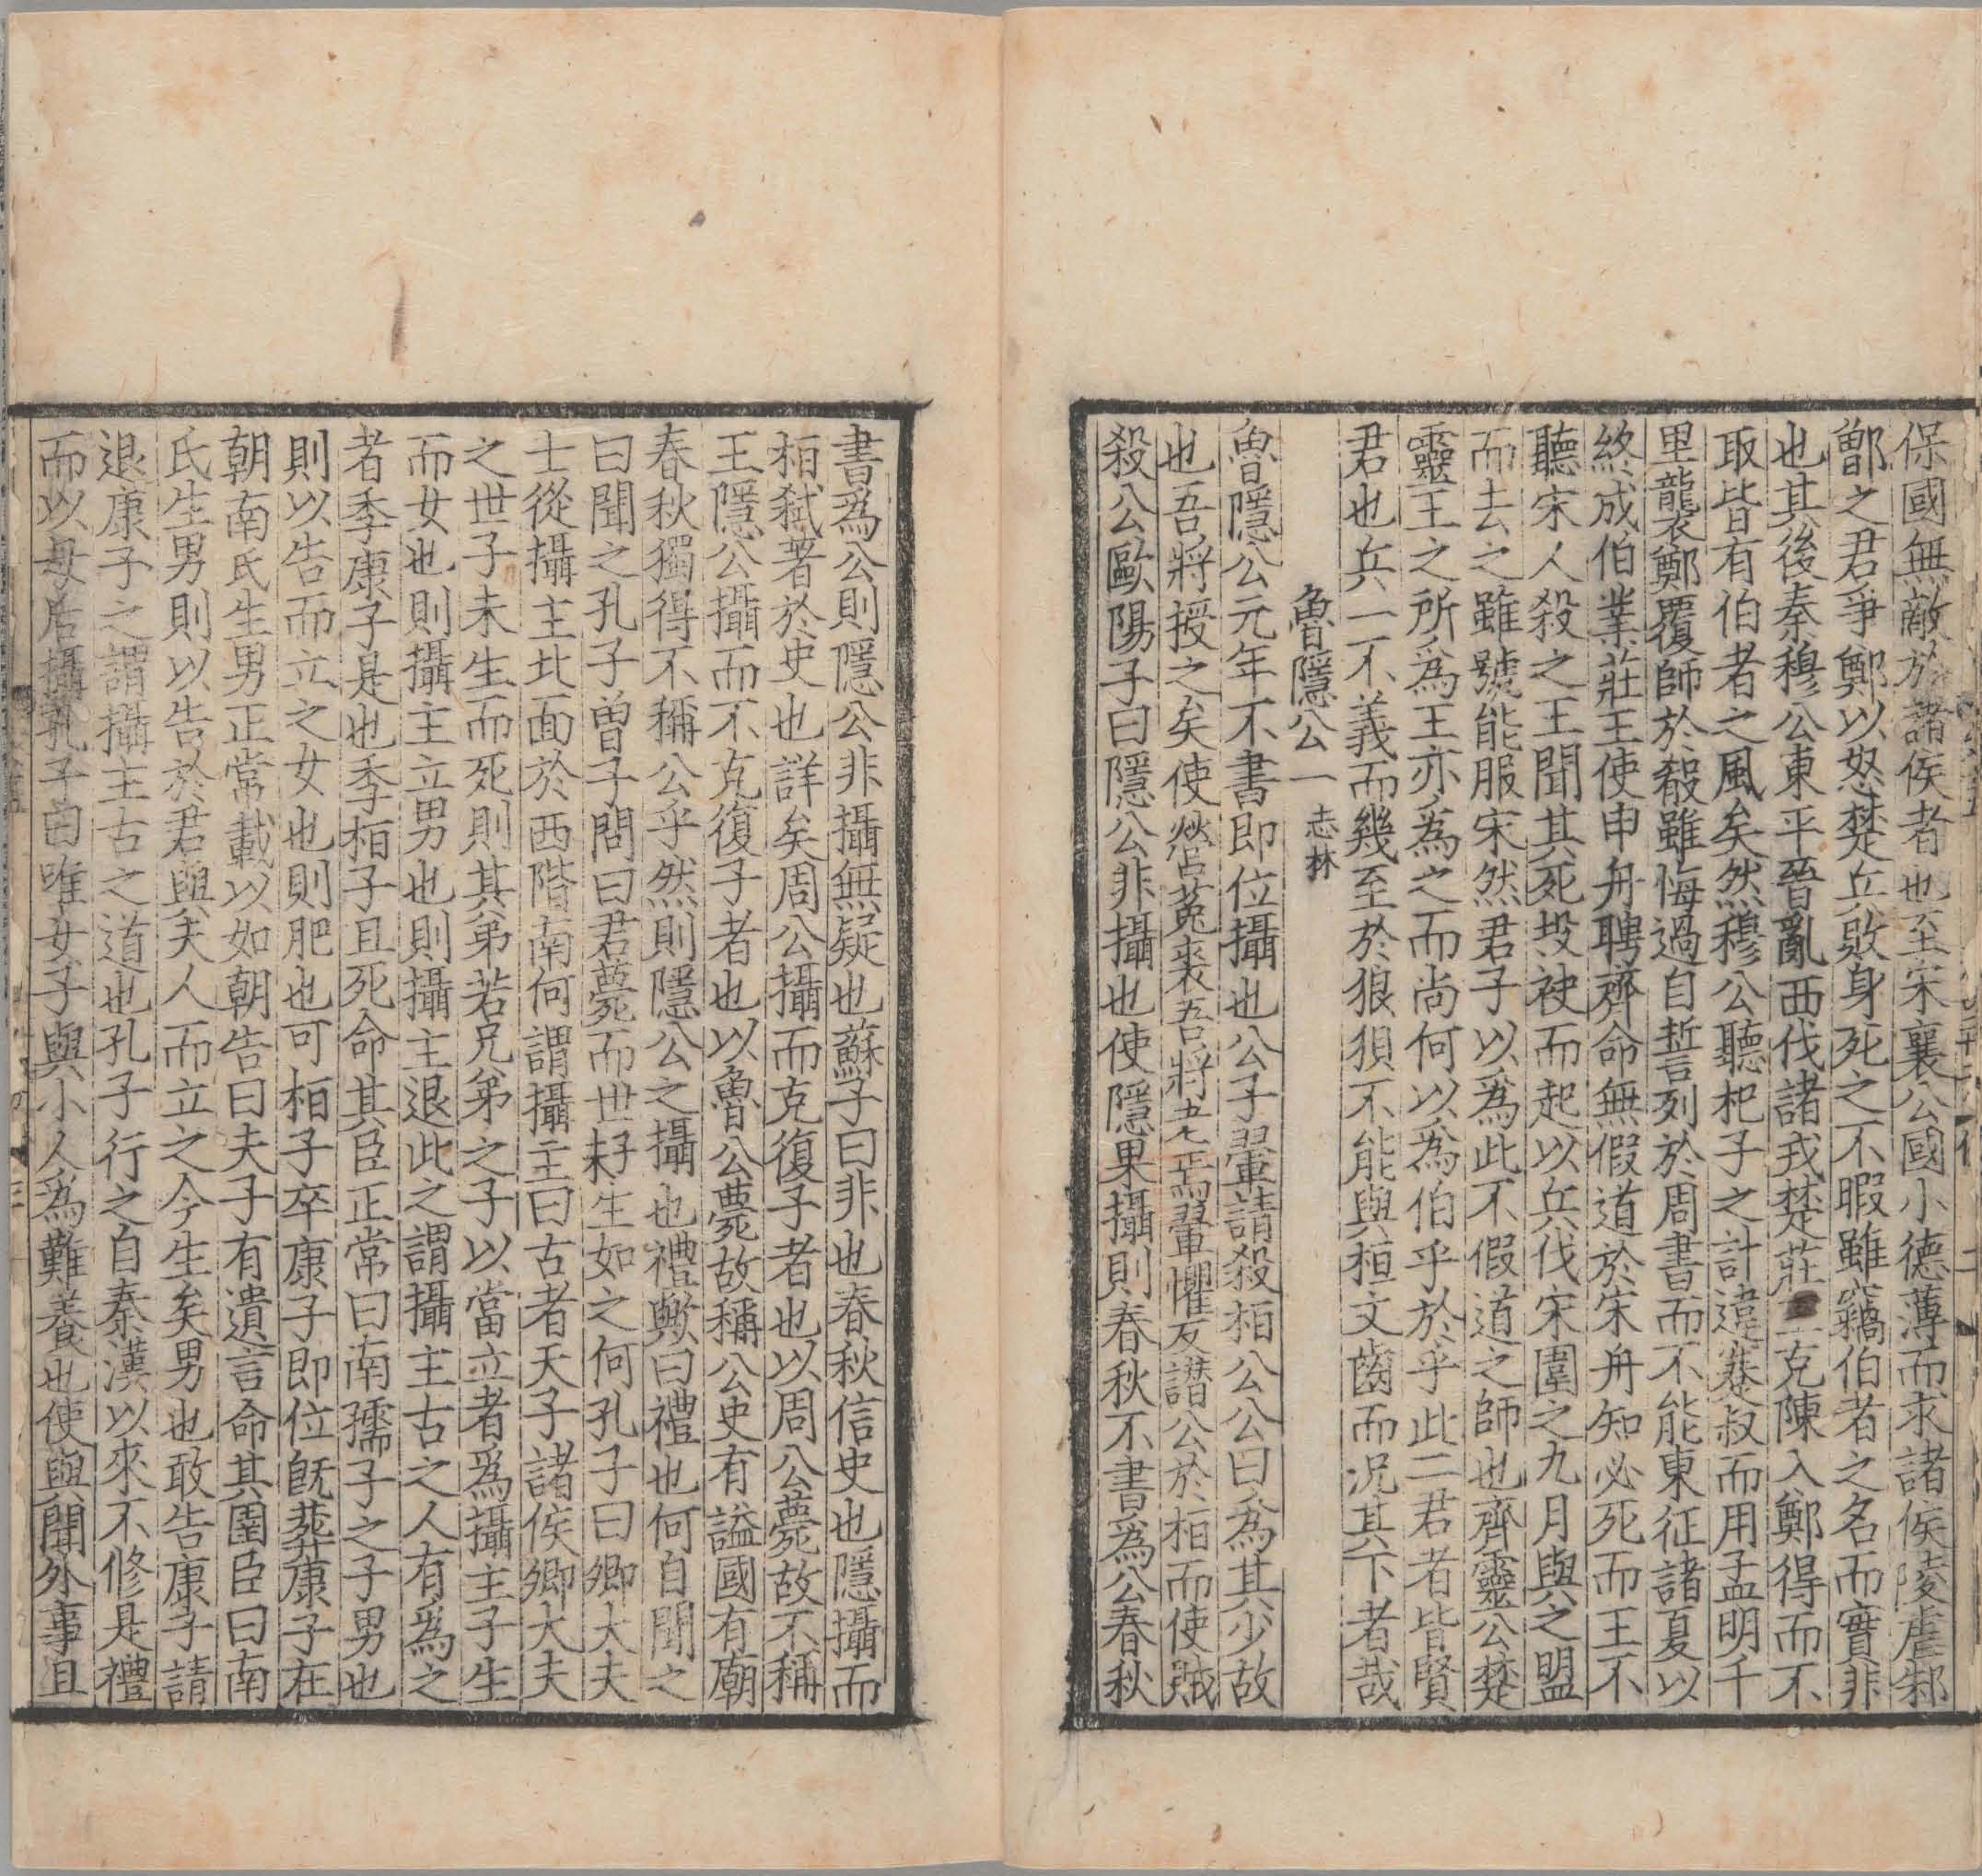 保國無敵於諸侯者也至宋襄公國小德薄而求諸侯陵虐邾
鄫之君爭鄭以怒楚兵敗身死之不暇雖竊伯者之名而實非
也其後秦穆公東平晉亂西伐諸戎楚莊王克陳入鄭得而不
取皆有伯者之風矣然穆公聽杞子之計違蹇叔而用孟明千
里襲鄭覆師於殽雖悔過自誓列於周書而不能東征諸夏以
終成伯業莊王使申舟聘齊命無假道於宋舟知必死而王不
聽宋人殺之王聞其死投袂而起以兵伐宋圍之九月與之盟
而去之雖號能服宋然君子以爲此不假道之師也齊靈公楚
靈王之所爲王亦爲之而尚何以爲伯乎於乎此二君者皆賢
君也兵一不義而幾至於狼狽不能與桓文齒而况其下者哉
魯隱公一 志林
魯隱公元年不書即位攝也公子翬請殺桓公公曰爲其少故
也吾將授之矣使營菟裘吾將老焉翬懼反譖公於桓而使賊
殺公歐陽子曰隱公非攝也使隱果攝則春秋不書爲公春秋
書爲公則隱公非攝無疑也蘇子曰非也春秋信史也隱攝而
桓弑著於史也詳矣周公攝而克復子者也以周公薨故不稱
王隱公攝而不克復子者也以魯公薨故稱公史有謚國有廟
春秋獨得不稱公乎然則隱公之攝也禮歟曰禮也何自聞之
曰聞之孔子曾子問曰君薨而世子未生如之何孔子曰卿大夫
士從攝主北面於西階南何謂攝主曰古者天子諸侯卿大夫
之世子未生而死則其弟若兄弟之子以當立者爲攝主子生
而女也則攝主立男也則攝主退此之謂攝主古之人有爲之
者季康子是也季桓子且死命其臣正常曰南孺子之子男也
則以告而立之女也則肥也可桓子卒康子即位旣葬康子在
朝南氏生男正常載以如朝告曰夫子有遺言命其圉臣曰南
氏生男則以告於君與夫人而立之今生矣男也敢告康子請
退康子之謂攝主古之道也孔子行之自秦漢以來不修是禮
而以母后攝孔子曰唯女子與小人爲難養也使與聞外事且